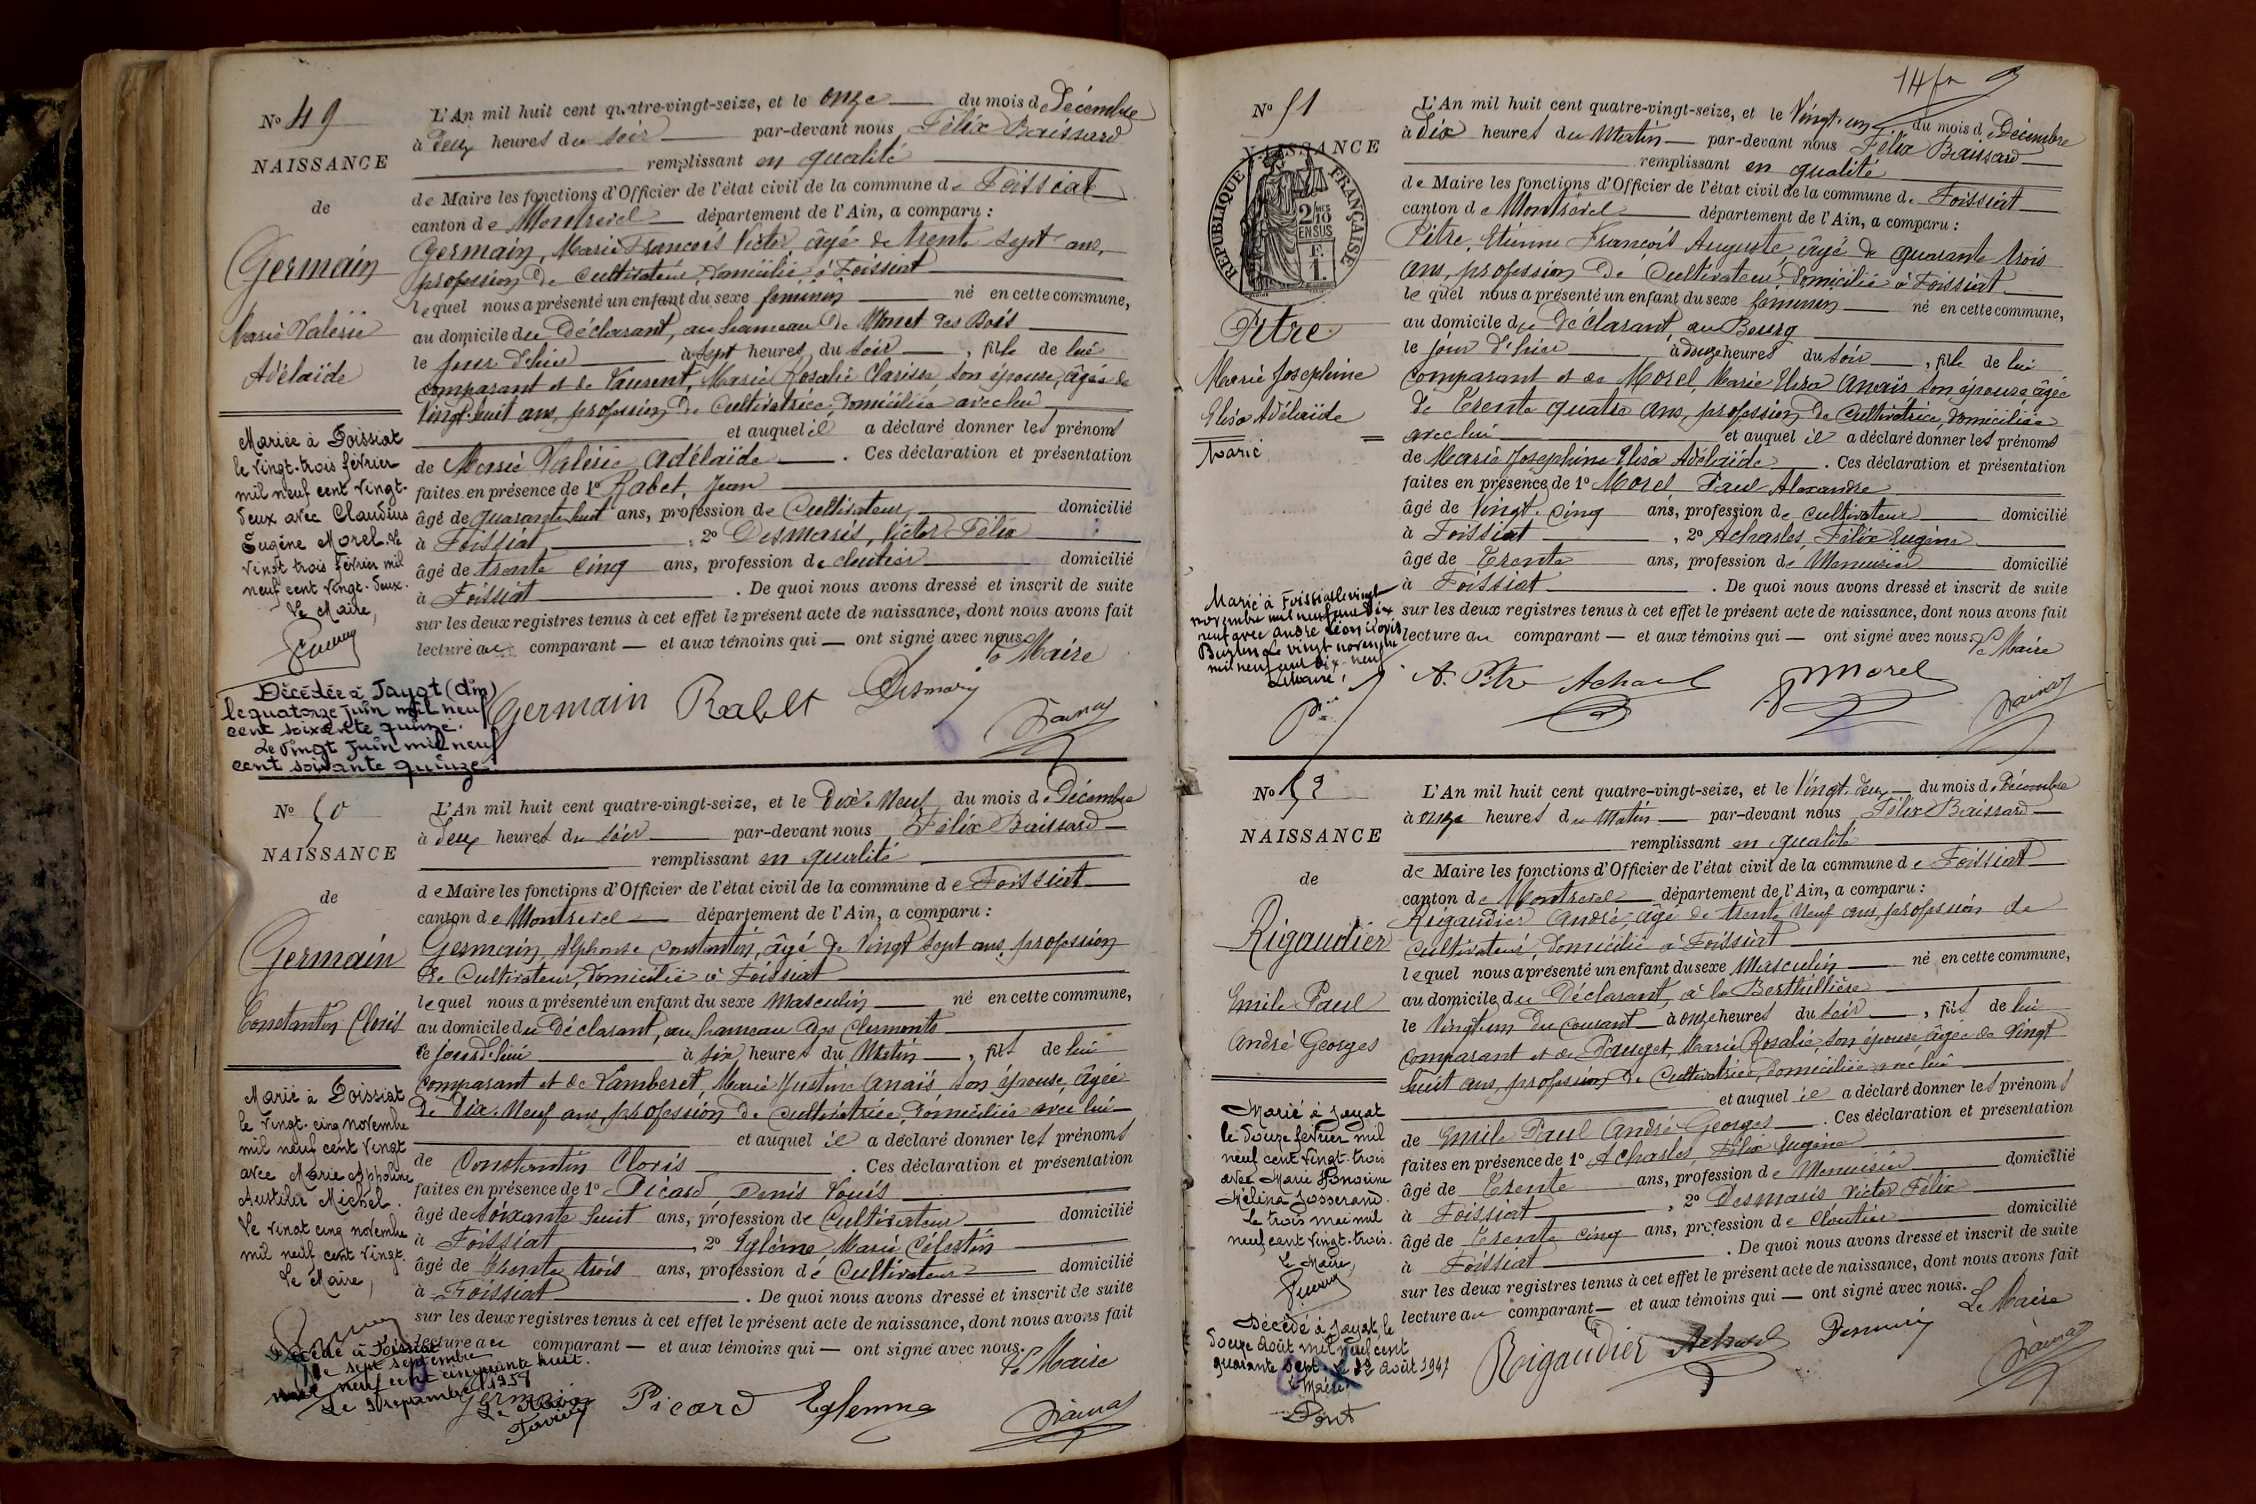 No 49
NAISSANCE
de
Germain
Marie Valérie
Adélaïde
Mariée à Foissiat
le vingt-trois février
mil neuf cent vingt-
deux avec Claudius
Eugène Morel. Le
vingt trois février mil
neuf cent vingt-deux.
Le Maire,
Décédée à Jayat (Ain)
le quatorze juin mil neuf
cent soixante quinze.
Le vingt juin mil neuf
cent soixante quinze.
L'An mil huit cent quatre-vingt-seize, et le onze du mois de Décembre
à deux heures du soir par-devant nous Félix Baissard
remplissant en qualité
de Maire les fonctions d'Officier de l'état civil de la commune de Foissiat
canton de Montrevel département de l'Ain, a comparu :
Germain, Marie François Victor âgé de trente sept ans,
profession de Cultivateur, domicilié à Foissiat
lequel nous a présenté un enfant du sexe féminin né en cette commune,
au domicile du Déclarant, au hameau de Monet des Bois
le jour d'hier à sept heures du soir, fille de lui
comparant et de Laurent, Marie Rosalie Clarisse, son épouse, âgée de
vingt-huit ans, profession de Cultivatrice, domiciliée avec lui
et auquel il a déclaré donner les prénoms
de Marie Valérie Adélaïde. Ces déclaration et présentation
faites en présence de 1o Rabet, Jean
âgé de quarante huit ans, profession de Cultivateur domicilié
à Foissiat, 2o Desmaris, Victor Félix
âgé de trente cinq ans, profession de cloutier domicilié
à Foissiat. De quoi nous avons dressé et inscrit de suite
sur les deux registres tenus à cet effet le présent acte de naissance, dont nous avons fait
lecture au comparant — et aux témoins qui — ont signé avec nous.
Le Maire
Germain Rabet Desmaris
No 50
NAISSANCE
de
Germain
Constantin Cloris
Marié à Foissiat
le vingt-cinq novembre
mil neuf cent vingt
avec Marie Appoline
Michel.
Le vingt cinq novembre
mil neuf cent vingt.
Le Maire,
Décédé à Foissiat
le sept septembre
mil neuf cent cinquante huit.
Le 9 septembre 1958
Le Maire
L'An mil huit cent quatre-vingt-seize, et le Dix-Neuf du mois de Décembre
à deux heures du soir par-devant nous Félix Baissard
remplissant en qualité
de Maire les fonctions d'Officier de l'état civil de la commune de Foissiat
canton de Montrevel département de l'Ain, a comparu :
Germain, Alphonse Constantin, âgé de Vingt sept ans, profession
de Cultivateur, domicilié à Foissiat
lequel nous a présenté un enfant du sexe Masculin né en cette commune,
au domicile du Déclarant, au hameau des Clermonts
ce jourd'hui à six heures du Matin, fils de lui
comparant et de Lamberet, Marie Justine Anaïs, son épouse, âgée
de Dix-Neuf ans, profession de cultivatrice, domiciliée avec lui
et auquel il a déclaré donner les prénoms
de Constantin Cloris. Ces déclaration et présentation
faites en présence de 1o Picard, Denis Louis
âgé de soixante huit ans, profession de Cultivateur domicilié
à Foissiat, 2o Eglème Marie Célestin
âgé de trente trois ans, profession de Cultivateur domicilié
à Foissiat. De quoi nous avons dressé et inscrit de suite
sur les deux registres tenus à cet effet le présent acte de naissance, dont nous avons fait
lecture au comparant — et aux témoins qui — ont signé avec nous.
Le Maire
Germain Picard
14
No 51
NAISSANCE
REPUBLIQUE FRANÇAISE
2/10 MES
EN SUS
F.
1.
Pitre
Marie Josephine
Elisa Adélaïde
Marié à Foissiat le vingt
novembre mil neuf cent dix
neuf avec André Léon
Le vingt novembre
mil neuf cent dix-neuf
Le maire,
L'An mil huit cent quatre-vingt-seize, et le Vingt-un du mois de Décembre
à Dix heures du Matin par-devant nous Félix Baissard
remplissant en qualité
de Maire les fonctions d'Officier de l'état civil de la commune de Foissiat
canton de Montrevel département de l'Ain, a comparu :
Pitre, Etienne François Auguste, âgé de quarante trois
ans, profession de Cultivateur, domicilié à Foissiat
lequel nous a présenté un enfant du sexe féminin né en cette commune,
au domicile du Déclarant, au Bourg
le jour d'hier à douze heures du soir, fille de lui
comparant et de Morel Marie Anaïs son épouse âgée
de trente quatre ans, profession de cultivatrice, domiciliée
avec lui et auquel il a déclaré donner les prénoms
de Marie Josephine Elisa Adélaïde. Ces déclaration et présentation
faites en présence de 1o Morel Paul Alexandre
âgé de vingt-cinq ans, profession de cultivateur domicilié
à Foissiat, 2o Acharles, Félix Eugène
âgé de Trente ans, profession de Menuisier domicilié
à Foissiat. De quoi nous avons dressé et inscrit de suite
sur les deux registres tenus à cet effet le présent acte de naissance, dont nous avons fait
lecture au comparant — et aux témoins qui — ont signé avec nous.
Le Maire
A. Pitre Morel
No 52
NAISSANCE
de
Rigaudier
Emile Paul
André Georges
Marié à Jayat
le douze février mil
neuf cent vingt-trois
avec Marie Honorine
Mélina Josserand.
Le trois mai mil
neuf cent vingt-trois.
Le Maire,
Décédé à Jayat, le
douze août mil neuf cent
quarante sept. Le 12 août 1947
Le Maire
L'An mil huit cent quatre-vingt-seize, et le Vingt-deux du mois de Décembre
à onze heures du Matin par-devant nous Félix Baissard
remplissant en qualité
de Maire les fonctions d'Officier de l'état civil de la commune de Foissiat
canton de Montrevel département de l'Ain, a comparu :
Rigaudier André, âgé de trente neuf ans, profession de
cultivateur, domicilié à Foissiat
lequel nous a présenté un enfant du sexe Masculin né en cette commune,
au domicile du Déclarant, à la Berthillière
le vingt un du courant à onze heures du soir, fils de lui
comparant et de Pauget, Marie Rosalie, son épouse âgée de vingt
huit ans, profession de Cultivatrice, domiciliée avec lui
et auquel il a déclaré donner les prénoms
de Emile Paul André Georges. Ces déclaration et présentation
faites en présence de 1o Acharles, Félix Eugène
âgé de Trente ans, profession de Menuisier domicilié
à Foissiat, 2o Desmaris Victor Félix
âgé de Trente cinq ans, profession de Cloutier domicilié
à Foissiat. De quoi nous avons dressé et inscrit de suite
sur les deux registres tenus à cet effet le présent acte de naissance, dont nous avons fait
lecture au comparant — et aux témoins qui — ont signé avec nous.
Le Maire
Rigaudier